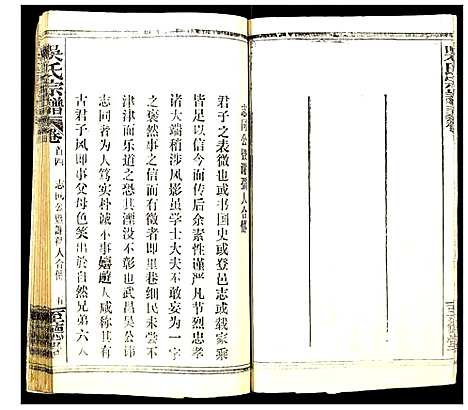 志同公暨謝孺人合傳
君子之表微也或书国史或登邑志或载家乘
皆足以信今而传后余素性谨严凡节烈忠孝
诸大端稍涉风影虽学士大夫不敢妄为一字
之褒然事之信而有徵者即里巷细民未尝不
津津而乐道之恐其湮没不彰也武昌吴公讳
志同者为人笃实朴诚不事嬉遊人咸称其有
古君子风即事父母色笑出於自然兄弟六人
吴氏宗譜
卷首四
志同公暨謝孺人合傳
五
至德堂